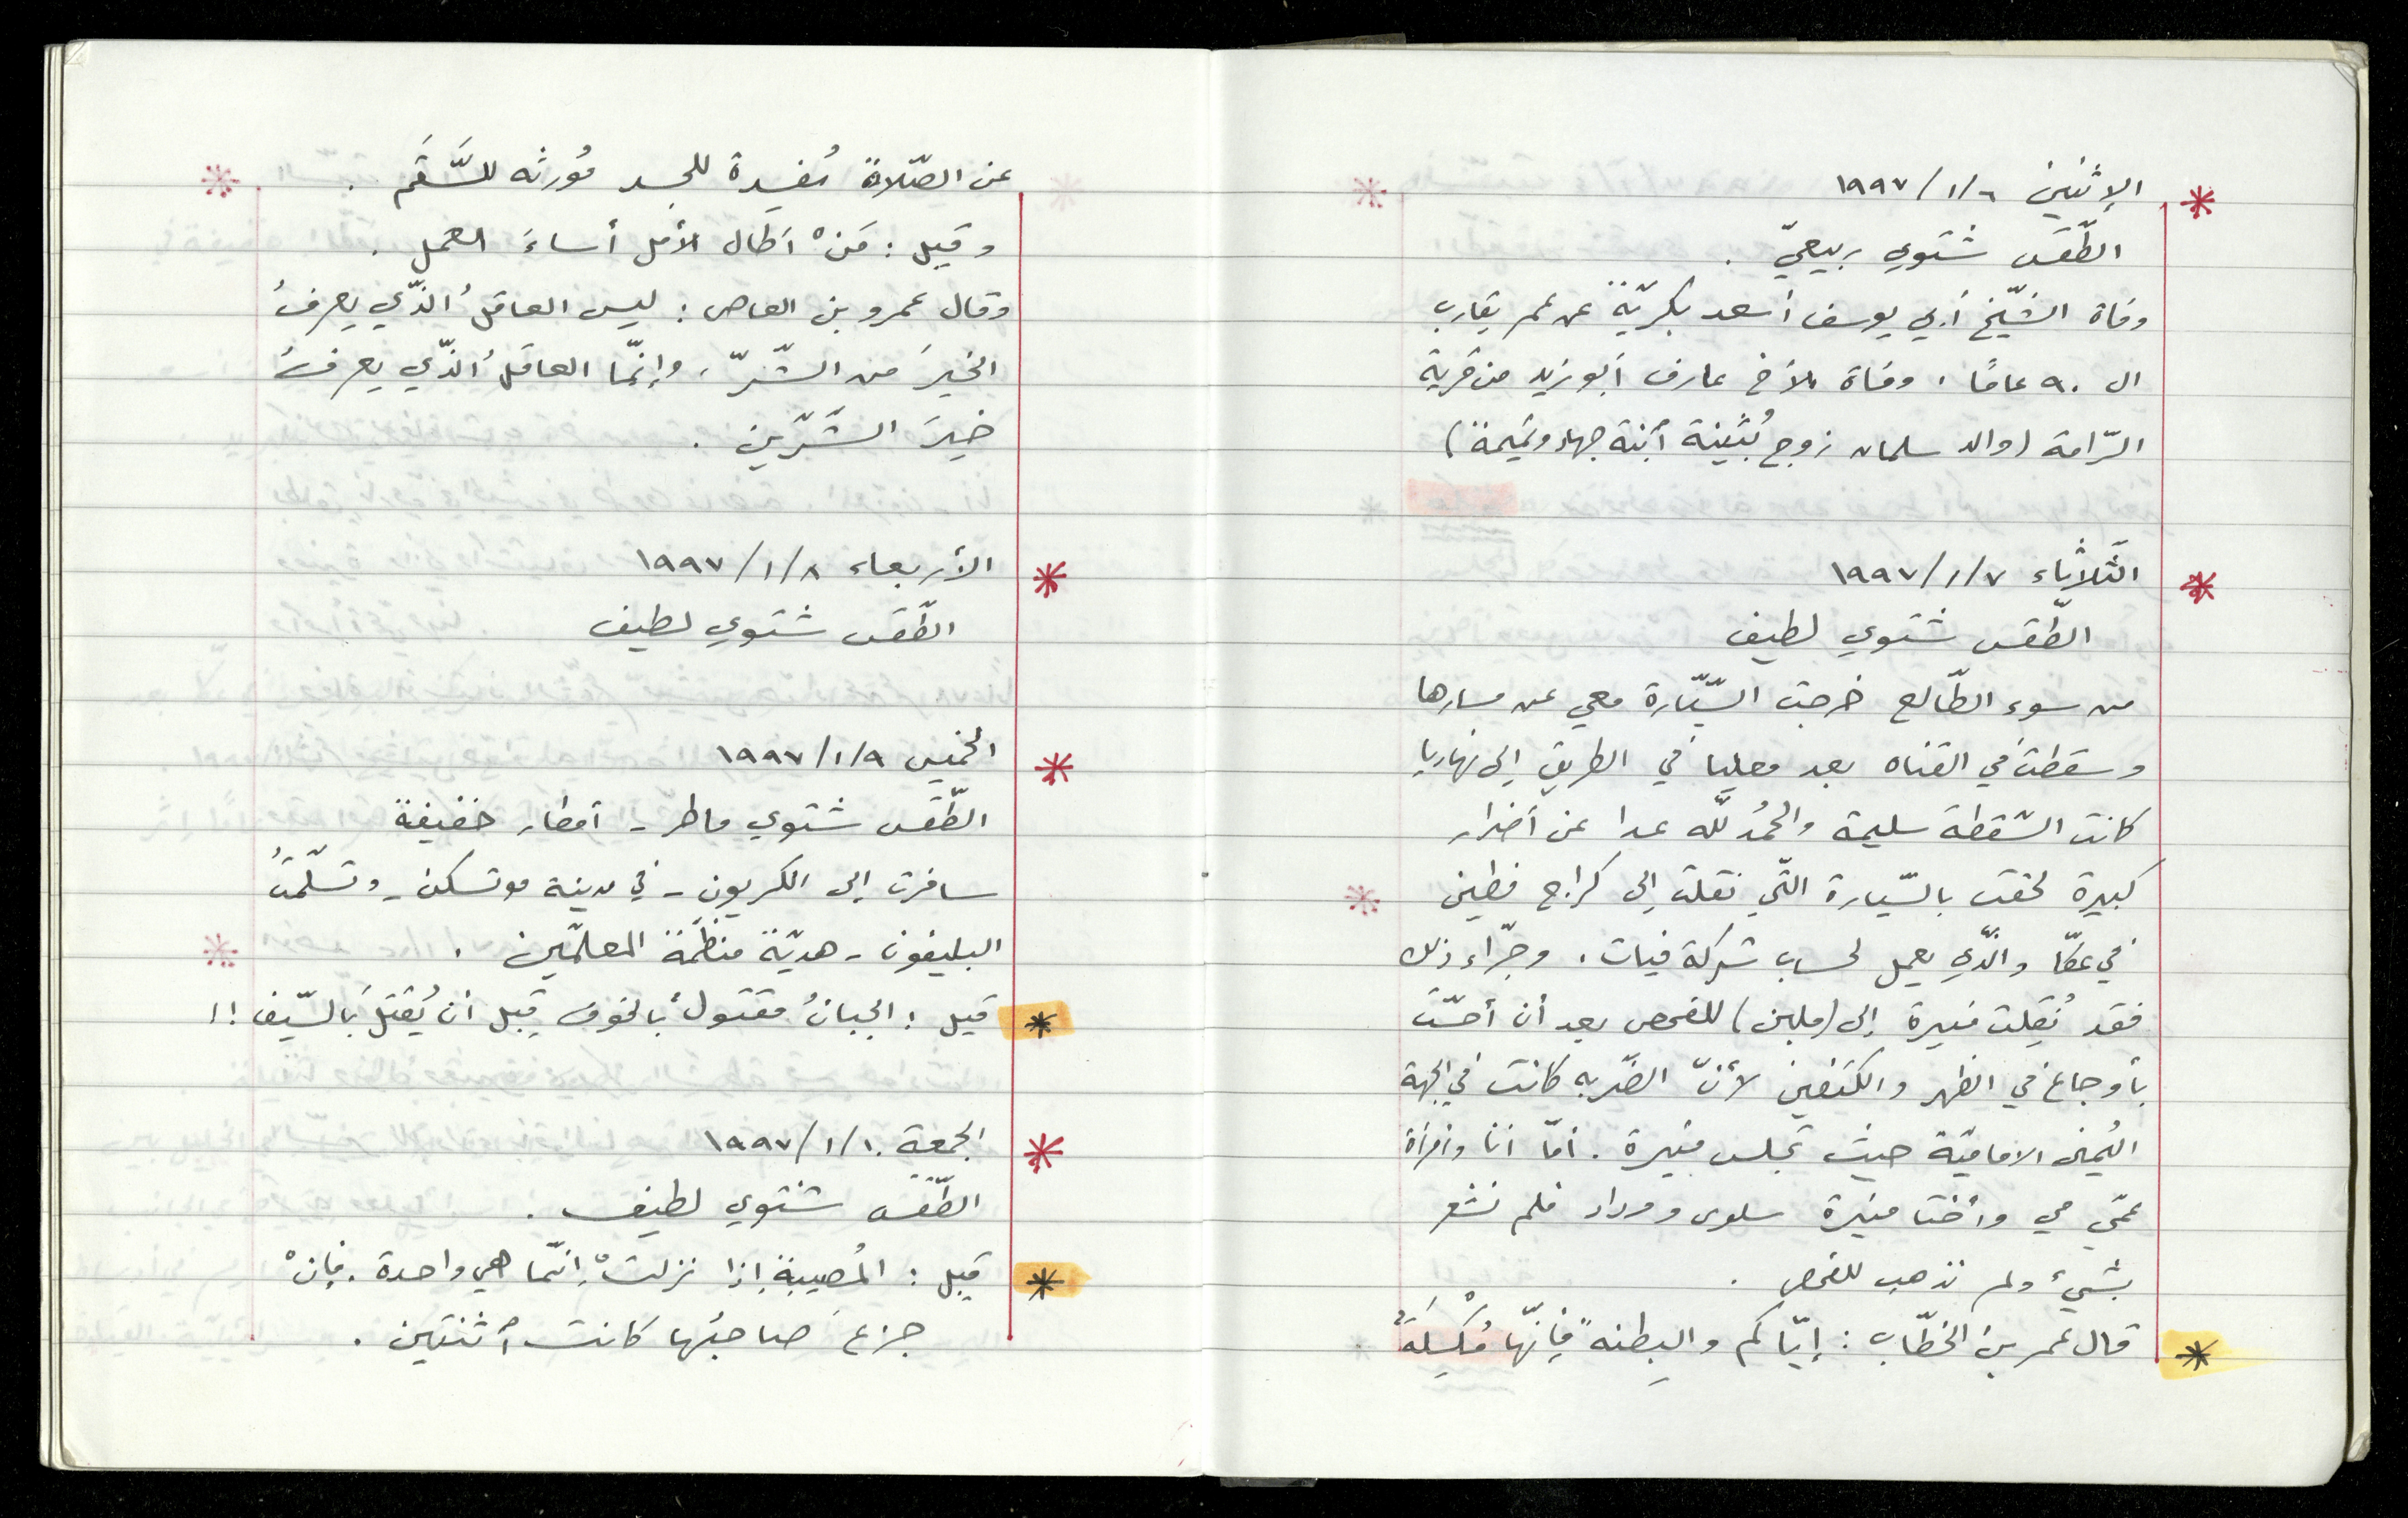 الإثنين ٦/١/١٩٩٧
الطّقس شتوي ربيعيّ .
وفاة الشّيخ أبي يوسف أسعد بكريّة عن عمر يقارب
ال ٩٠ عامًا ، وفاة الأخ عارف أبو زيد من قرية
الرّامة (والد سلمان زوج بُثينة أبنة جهاد ونجيمة)
الثّلاثاء ٧/١/١٩٩٧
الطّقس شتوي لطيف
من سوء الطّالع خرجت السّيّارة معي عن مسارها
وسقطت في القناه بعد معليا في الطريق إلى نهاريا
كانت السّقطة سليمة والحمُد للّه عدا عن أضرار
كبيرة لحقت بالسّيارة التّي نقلت إلى كراج فطين
في عكّا والّذي يعمل لحساب شركة فيات . وجرّاء ذلك
فقد نُقلت منيرة إلى (ملبن) للفحص بعد أن أحسّت
بأوجاع في الظهر والكتفين لأنّ الضّربه كانت في الجهة
اليُمنى الاماميّة حيث تجلس منيرة . أمّا أنا وأمرأة
عمّي مي وأختا منيرة سلوى ووداد فلم نشعر
بشيءٔ ولم نذهب للفحص .
قال عمر بن الخطّاب : إيّاكم والبطنه ًفإنّها مُكْسِلَةٌ
عن الصّلاة مُفسدة للجسد مُورثه للسَّقَم .
وقيل : مَنْ أطال الأمل أساءَ العمل .
وقال عمرو بن العاص : ليس العاقلُ الّذي يعرفُ
الخيرَ من الشّرّ ، وإنّما العاقلُ الّذي يعرفُ
خيرَ الشّرّين .
الأربعاء ٨/١/١٩٩٧
الطّقس شتوي لطيف
الخميس ٩/١/١٩٩٧
الطّقس شتوي ماطر - أمطار خفيفة
سافرت إلى الكريون - في مدينة موتسكن - وتسلّمتُ
البليفون - هديّة منظّمة المعلمّين .
قيل : الجبانُ مقتولٌ بالخوف قبل أن يُقتلَ بالسّيف !!
الجمعة ١٠/١/١٩٩٧
الطّقس شتوي لطيف .
قيل : المُصيبة إذا نزلتْ إنّما هي واحدة . فإنْ
جزع صاحبُها كانت أثنتين .